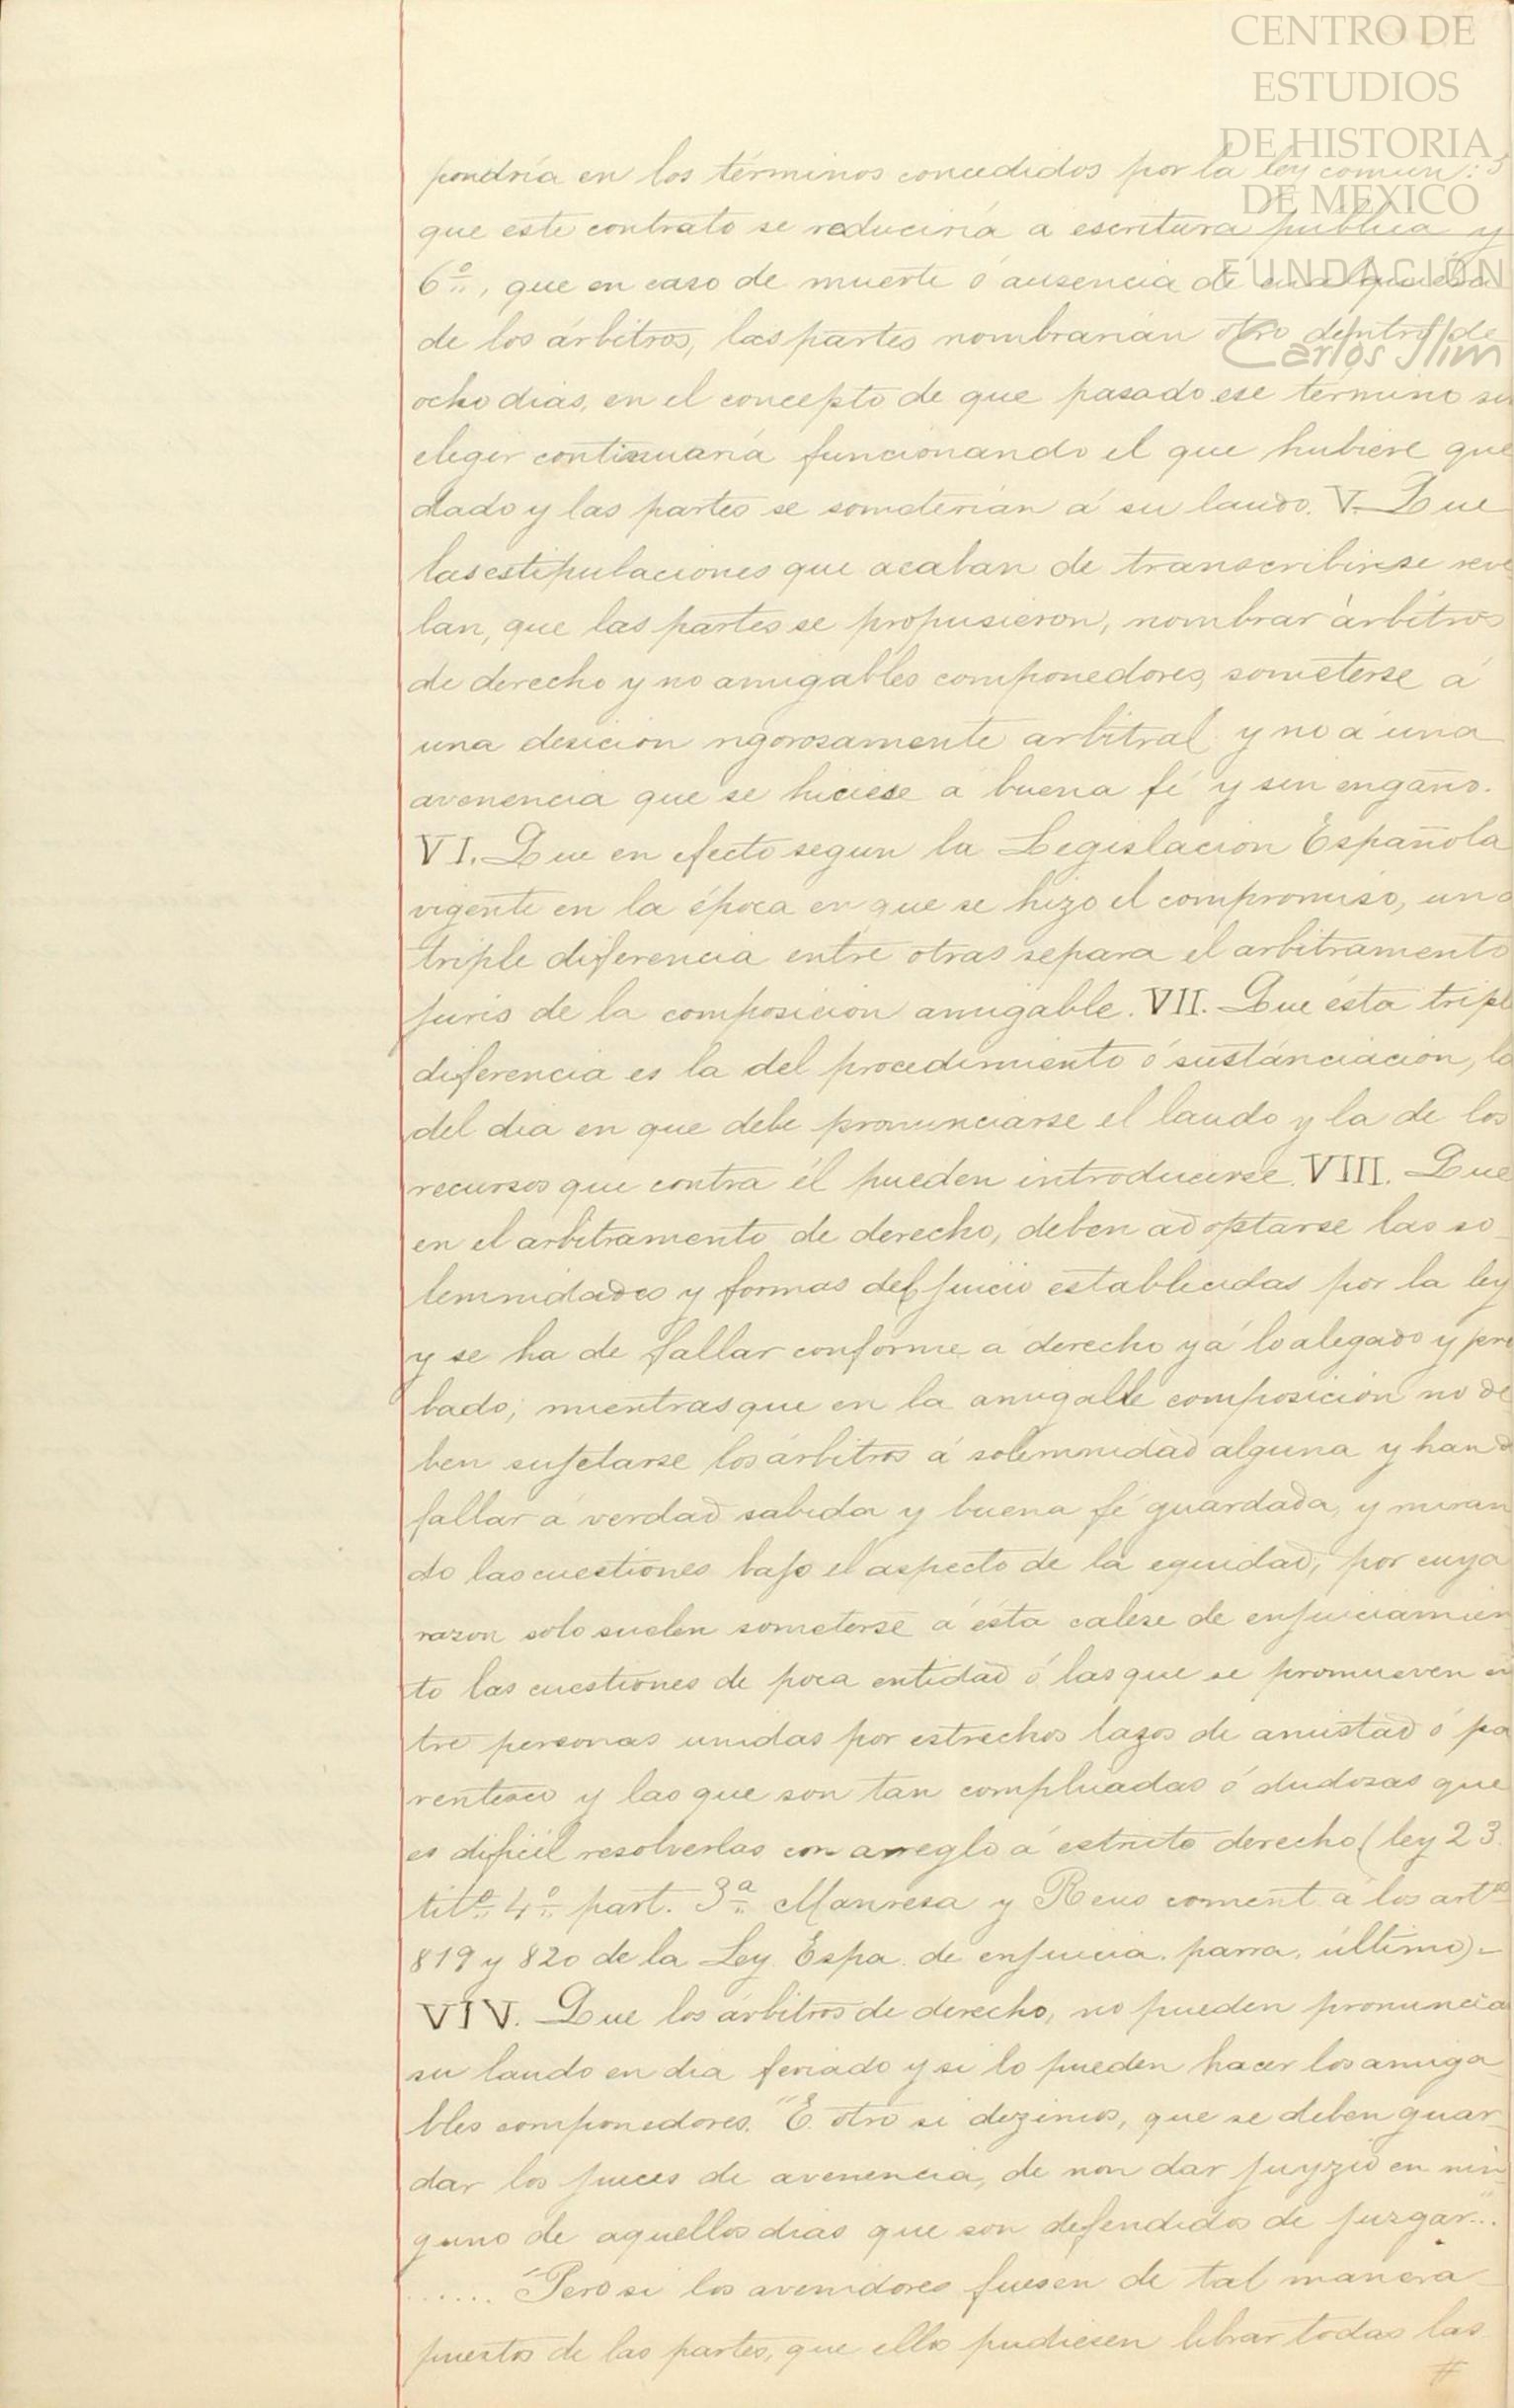 CENTRO DE
ESTUDIOS
DE HISTORIA
DE MEXICO
FUNDACIÓN
Carlos Slim
pondría en los términos concedidos por la ley comun: 5
que este contrato se reduciría a escritura publica y
6º, que en caso de muerte ó ausencia de cualquiera
de los árbitros, las partes nombrarían otro dentro de
ocho dias, en el concepto de que pasado ese termino sin
eleger continuaría funcionando el que hubiere que
dado y las partes se someterían á su laudo. V. Que
las estipulaciones que acaban de transcribirse reve
lan, que las partes se propusieron, nombrar árbitros
de derecho y no amigables componedores, someterse á
una desicion rigorosamente arbitral y no á una
avenencia que se hiciese a buena fé y sin engaño.
VI. Que en efecto segun la Legislacion Española
vigente en la época en que se hizo el compromiso, una
triple diferencia entre otras separa el arbitramento
juris de la composicion amigable. VII. Que esta tripl
diferencia es la del procedimiento ó sustánciacion, la
del dia en que debe pronunciarse el laudo y la de los
recursos que contra él pueden introducirse. VIII. Que
en el arbitramento de derecho, deben adoptarse las so
lemnidades y formas del juicio establecidas por la ley
y se ha de fallar conforme a derecho y á lo alegado y pro
bado; mientras que en la amigable composicion no de
ben sujetarse los árbitros á solemnidad alguna y han d
fallar á verdad sabida y buena fé guardada, y miran
do las cuestiones bajo el aspecto de la equidad, por cuya
razon solo suelen someterse á ésta calese de enjuiciamien
to las cuestiones de poca entidad ó las que se promueven en
tre personas unidas por estrechos lazos de amistad ó pa
rentesco y las que son tan complicadas ó dudosas que
es dificil resolverlas con arreglo á estricto derecho (ley 23.
titº 4º part. 3ª Manresa y Reus coment. á los artºs
819 y 820 de la Ley Espa. de enjuicia. parra. último).-
VIV. Que los árbitros de derecho, no pueden pronuncia
su laudo en dia feriado y si lo pueden hacer los amiga
bles componedores. "E otro si dezimos, que se deben guar
dar los jueces de avenencia, de non dar juyzio en nin
guno de aquellos dias que son defendidos de juzgar"...
...... "Pero si los avenidores fuesen de tal manera
puestos de las partes, que ellos pudiesen librar todas las
#